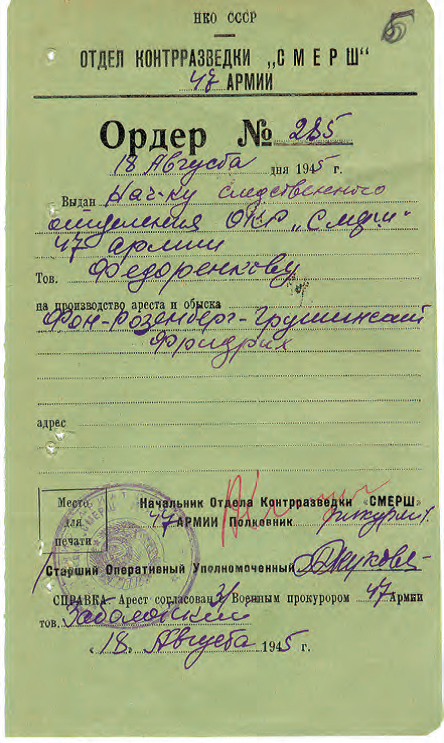 НКО СССР
5
ОТДЕЛ КОНТРРАЗВЕДКИ „СМЕРШ“
47 АРМИИ
Ордер № 285
18 Августа дня 1945 г.
Выдан Нач-ку следственного
отделения ОКР „Смерш“
47 армии
Тов. Федоренкову
на производство ареста и обыска
Фон-Розенберг-Грушинский
Фридрих
адрес
Место для печати
Начальник Отдела Контрразведки «СМЕРШ»
47 АРМИИ Полковник
Старший Оперативный Уполномоченный
СПРАВКА: Арест согласован с Военным прокурором 47 Армии
тов. Заболоцкий
„18“ Августа 1945 г.